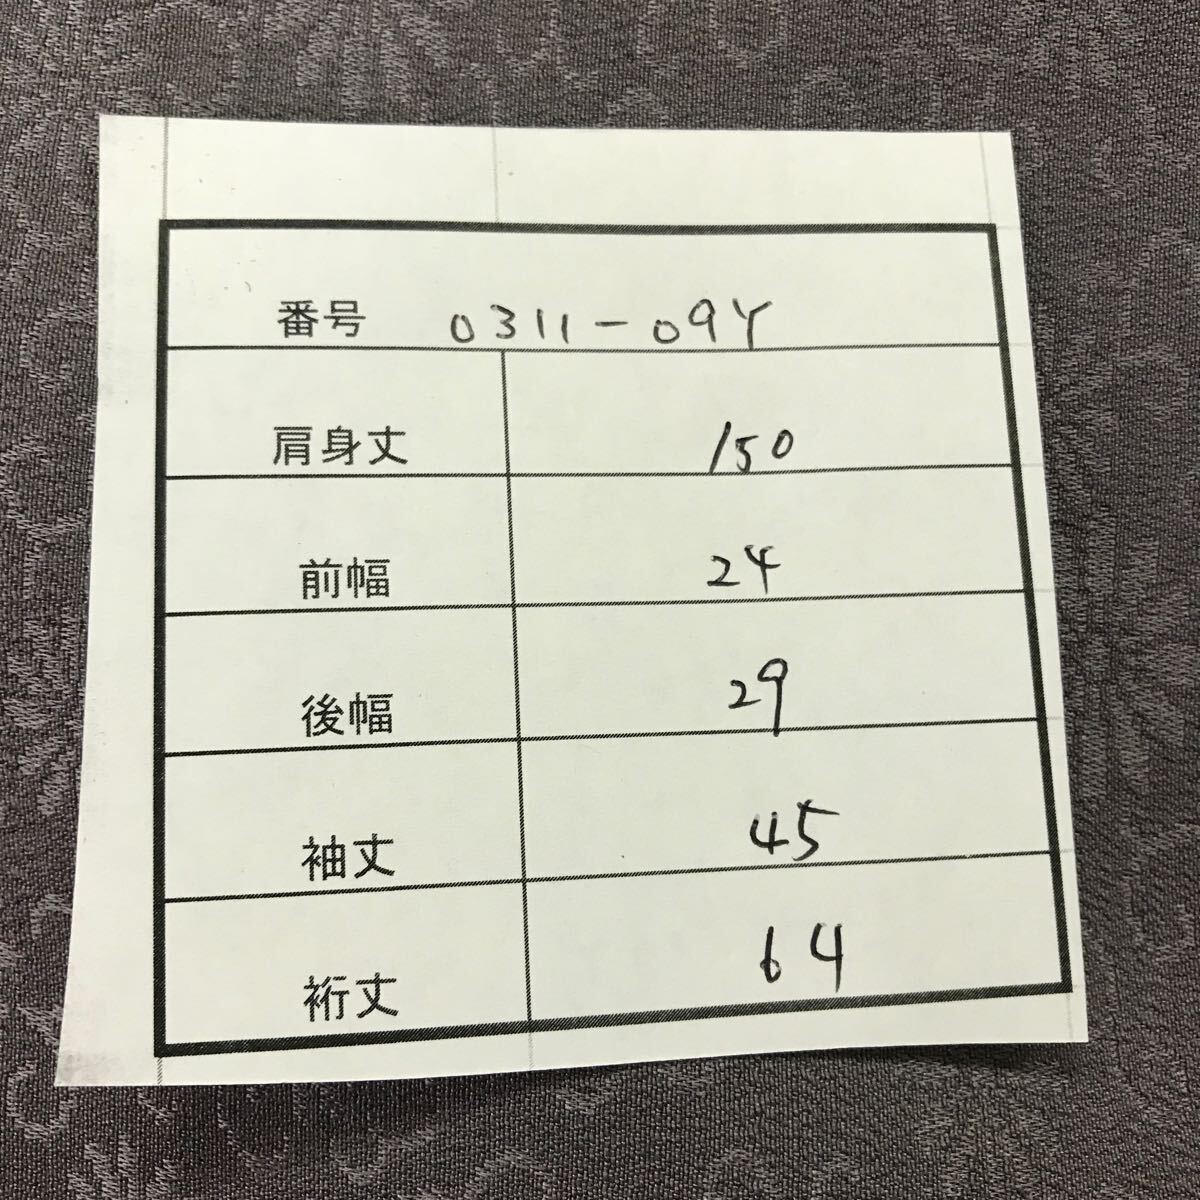 番号 0311-09Y
肩身丈 150
前幅 24
後幅 29
袖丈 45
裄丈 64